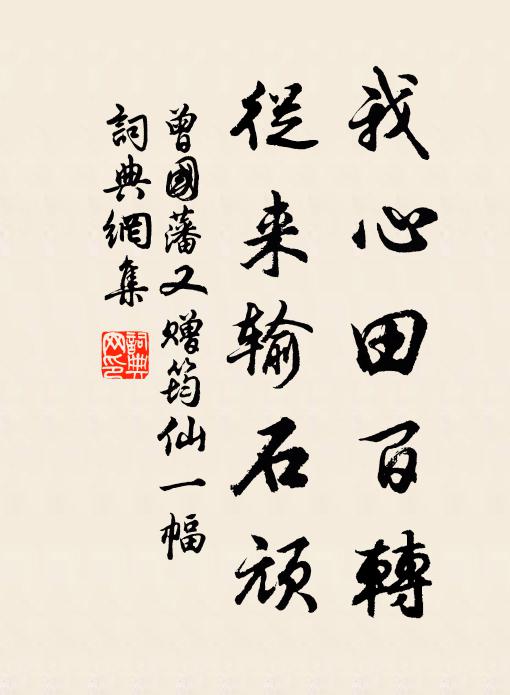 我心田百轉
從来输石頑
曾國藩又赠筠仙一幅
詞典網集
詞典网印